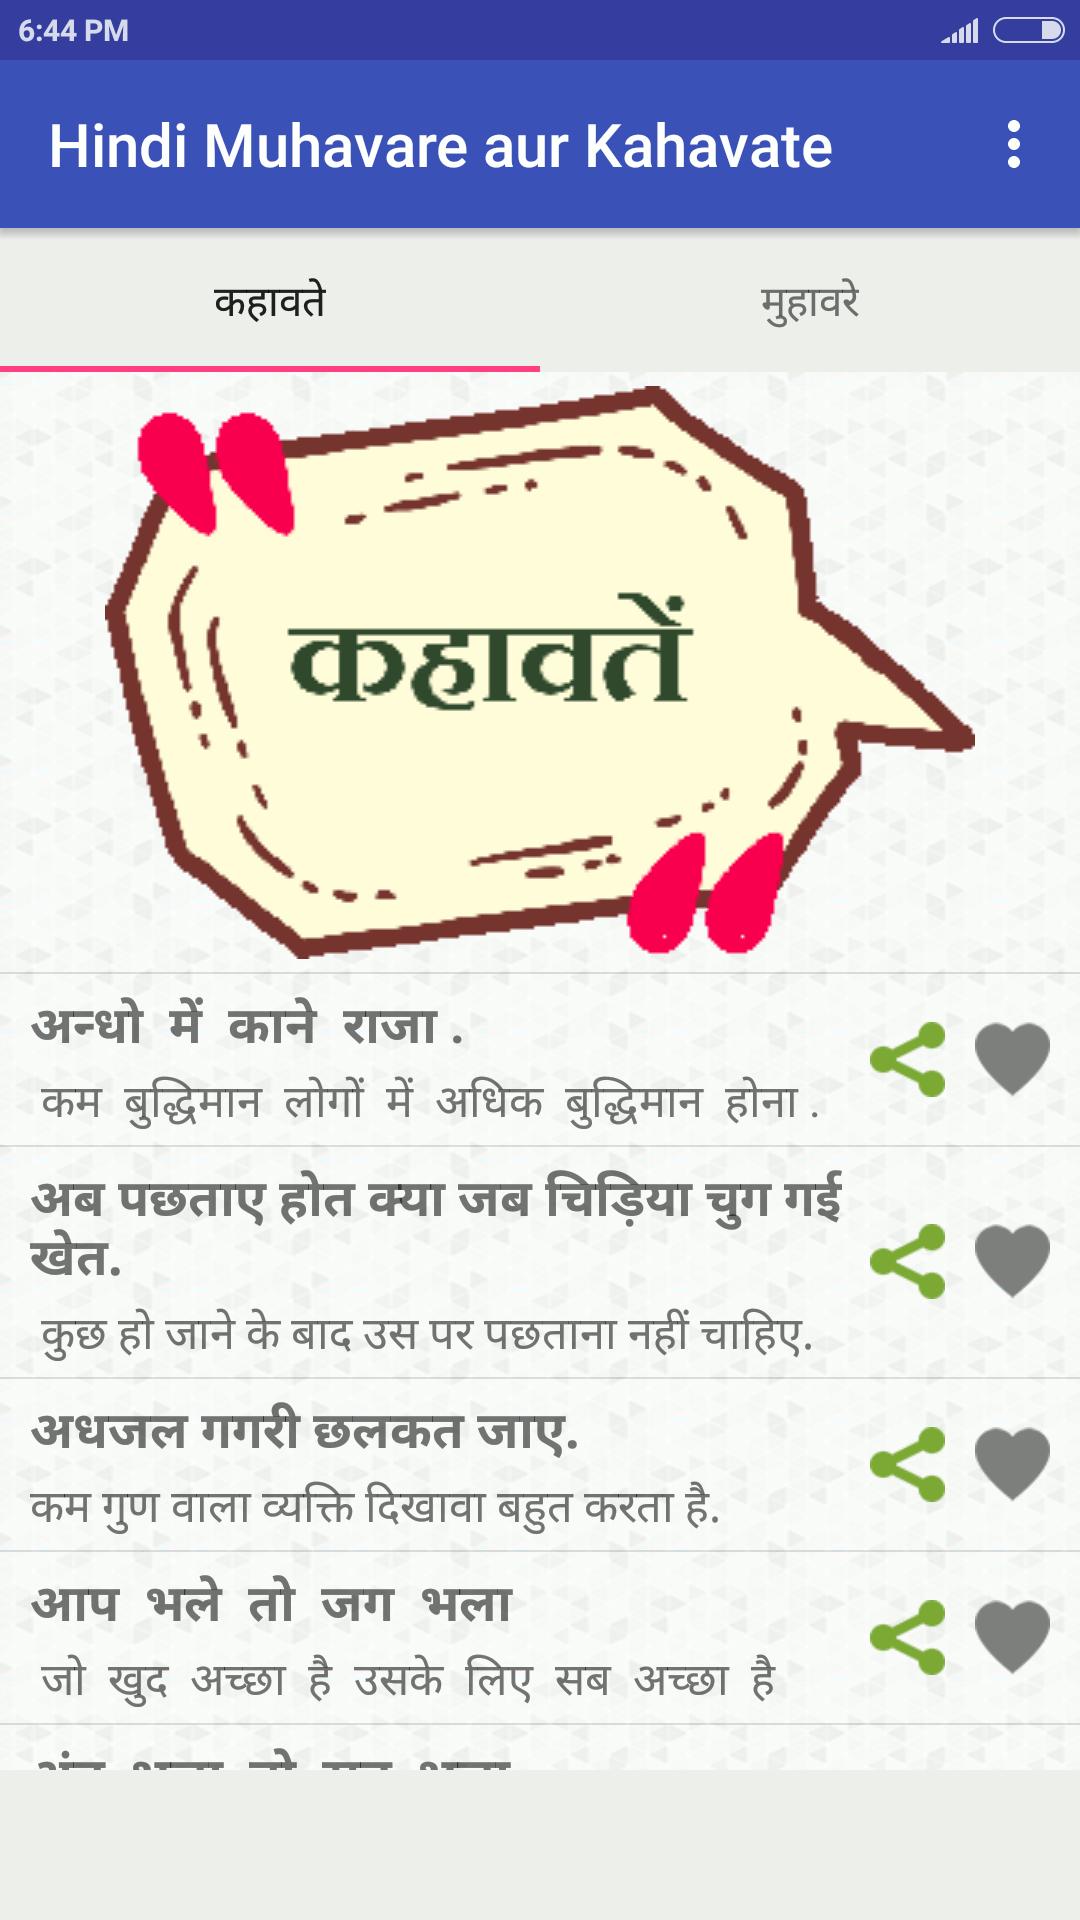 6:44 PM
Hindi Muhavare aur Kahavate
कहावते
मुहावरे
कहावतें
अन्धो में काने राजा .
कम बुद्धिमान लोगों में अधिक बुद्धिमान होना .
अब पछताए होत क्या जब चिड़िया चुग गई
खेत.
कुछ हो जाने के बाद उस पर पछताना नहीं चाहिए.
अधजल गगरी छलकत जाए.
कम गुण वाला व्यक्ति दिखावा बहुत करता है.
आप भले तो जग भला
जो खुद अच्छा है उसके लिए सब अच्छा है